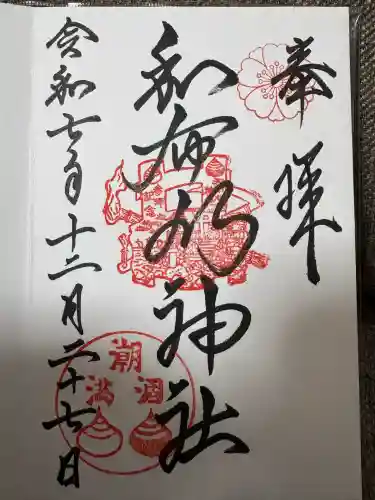 奉拝
和布刈神社
令和七年十二月二十七日
潮
満